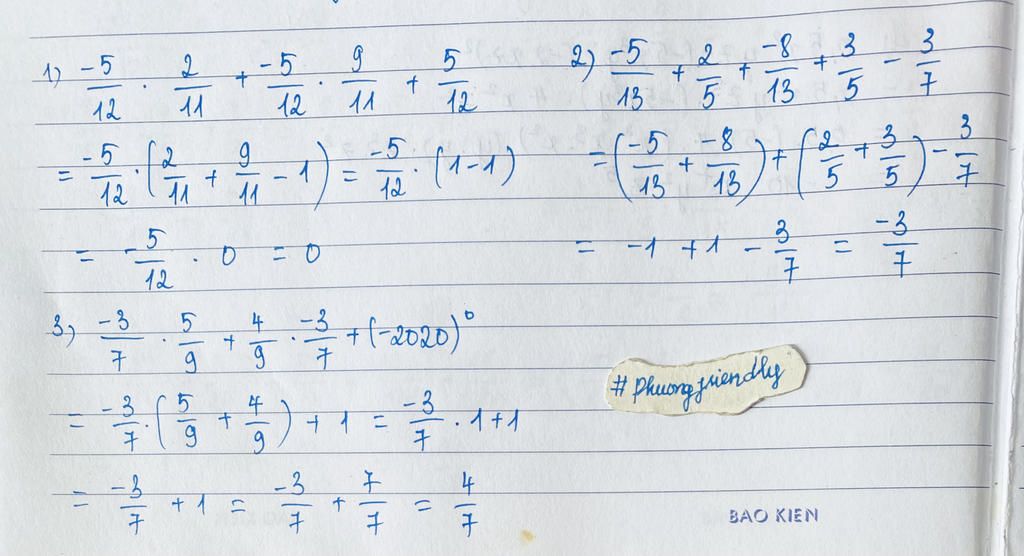 1) -5/12 . 2/11 + -5/12 . 9/11 + 5/12
= -5/12 . (2/11 + 9/11 - 1) = -5/12 . (1-1)
= -5/12 . 0 = 0
2) -5/13 + 2/5 + -8/13 + 3/5 - 3/7
= (-5/13 + -8/13) + (2/5 + 3/5) - 3/7
= -1 + 1 - 3/7 = -3/7
3) -3/7 . 5/9 + 4/9 . -3/7 + (-2020)⁰
= -3/7 . (5/9 + 4/9) + 1 = -3/7 . 1 + 1
= -3/7 + 1 = -3/7 + 7/7 = 4/7
#phuongfriendly
BAO KIEN